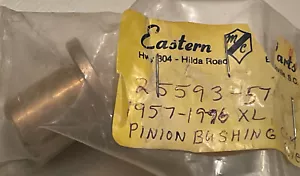 Eastern mc Parts
Hwy 304 - Hilda Road
25593-57
1957-1976 XL
PINION BUSHING